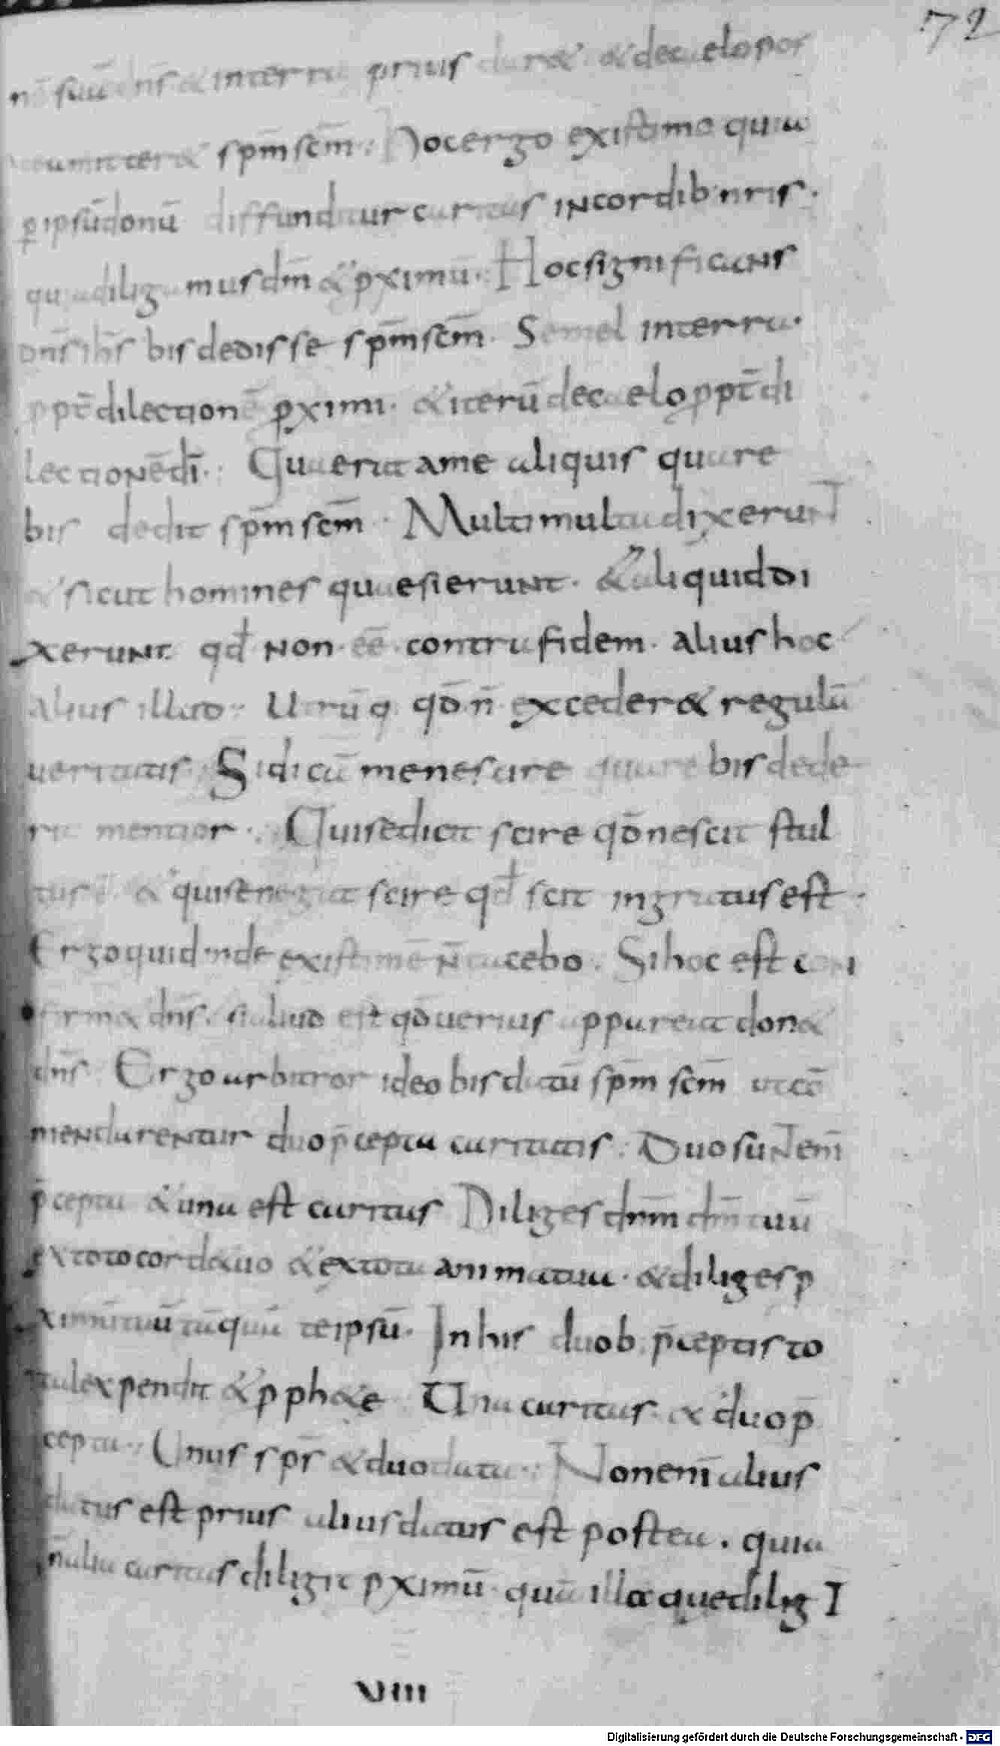 72
nē suū dn̄s & in terra prius dar& & de caelo pos
tea mitter& sp̄m sc̄m. Hoc ergo existimo quia
ꝑ ipsū donū diffunditur caritas in cordib; nr̄is.
qua diligamus dm̄ & pximū. Hoc significans
dn̄s ih̄s bis dedisse sp̄m sc̄m. Semel in terra.
ppt̄ dilectionē pximi. & iterū de caelo ppt̄ di
lectionē dī. Quaerat a me aliquis quare
bis dedit sp̄m sc̄m. Multi multa dixerunt
& sicut homines quaesierunt. & aliquid di
xerunt. qd̄ non eē contra fidem. alius hoc
alius illud. Utrūq; qđ n̄ exceder& regulā
ueritatis. Si dicā me nescire quare bis dede
rit mentior. Qui se dicit scire qđ nescit stul
tus ē. & qui se negat scire qd̄ scit ingratus est.
Ergo quid inde existimē n̄ tacebo. Si hoc est con
firm& dn̄s. si aliud est qđ uerius appareat don&
dn̄s. Ergo arbitror ideo bis datū sp̄m sc̄m ut cō
mendarentur duo p̄cepta caritatis. Duo sunt enī
p̄cepta & una est caritas. Diliges dnm̄ dm̄ tuū
ex toto corde tuo & ex tota anima tua. & diliges p
ximū tuū tāquā te ipsū. In his duob; p̄ceptis to
ta lex pendit & pph&e. Una caritas & duo p̄
cepta. Unus sp̄s & duo data. Non enī alius
datus est prius alius datus est postea. quia
n̄ alia caritas diligit pximū. quā illa que diligi
VIII
Digitalisierung gefördert durch die Deutsche Forschungsgemeinschaft - DFG